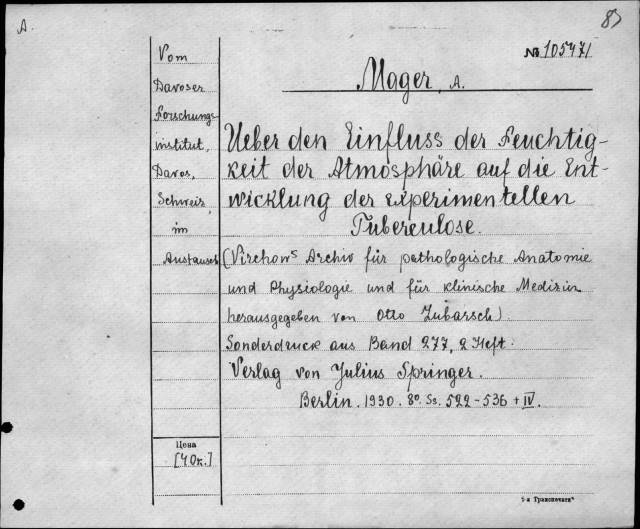 A.
87
№ 105471
Mager, A.
Vom
Davoser
Forschungs-
institut,
Davos,
Schweiz,
im
Austausch
Ueber den Einfluss der Feuchtig-
keit der Atmosphäre auf die Ent-
wicklung der experimentellen
Tuberculose.
(Virchows Archiv für pathologische Anatomie
und Physiologie und für klinische Medizin
herausgegeben von Otto Lubarsch)
Sonderdruck aus Band 277, 2 Heft.
Verlag von Julius Springer.
Berlin. 1930. 8º. Ss. 522-536 + IV.
Цена
[40к.]
5-я Транспечать